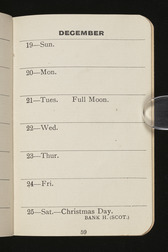 DECEMBER
19—Sun.
20—Mon.
21—Tues. Full Moon.
22—Wed.
23—Thur.
24—Fri.
25—Sat.—Christmas Day.
BANK H. (SCOT.)
59